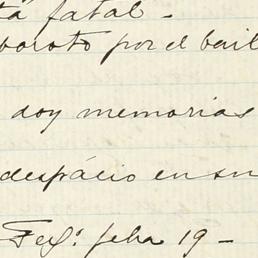 ta fatal -
boroto por el bail
doy memorias
despácio en su
feha 19 -